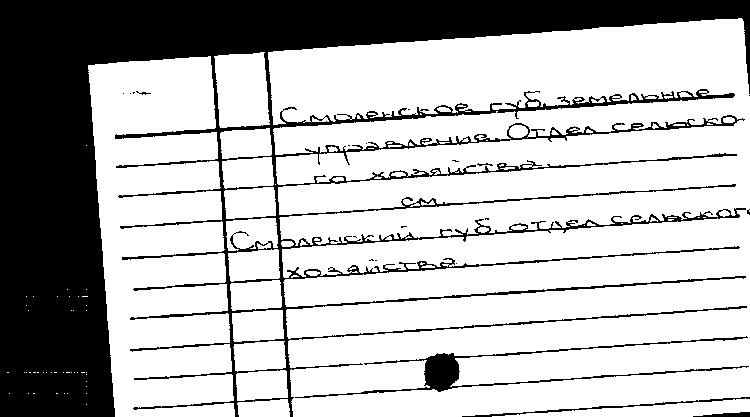 Смоленское губ. земельное
управление. Отдел сельско-
го хозяйства.
см.
Смоленский губ. отдел сельского
хозяйства.